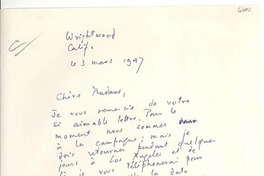 Wrightwood
Calif.
le 3 mars 1947
Chère Madame,
Je vous remercie de votre
si aimable lettre. Pour le
moment nous sommes
à la campagne; mais je
dois retourner pendant quelques
jours à Los Angeles et de
vous téléphonerai pour
si je
la date